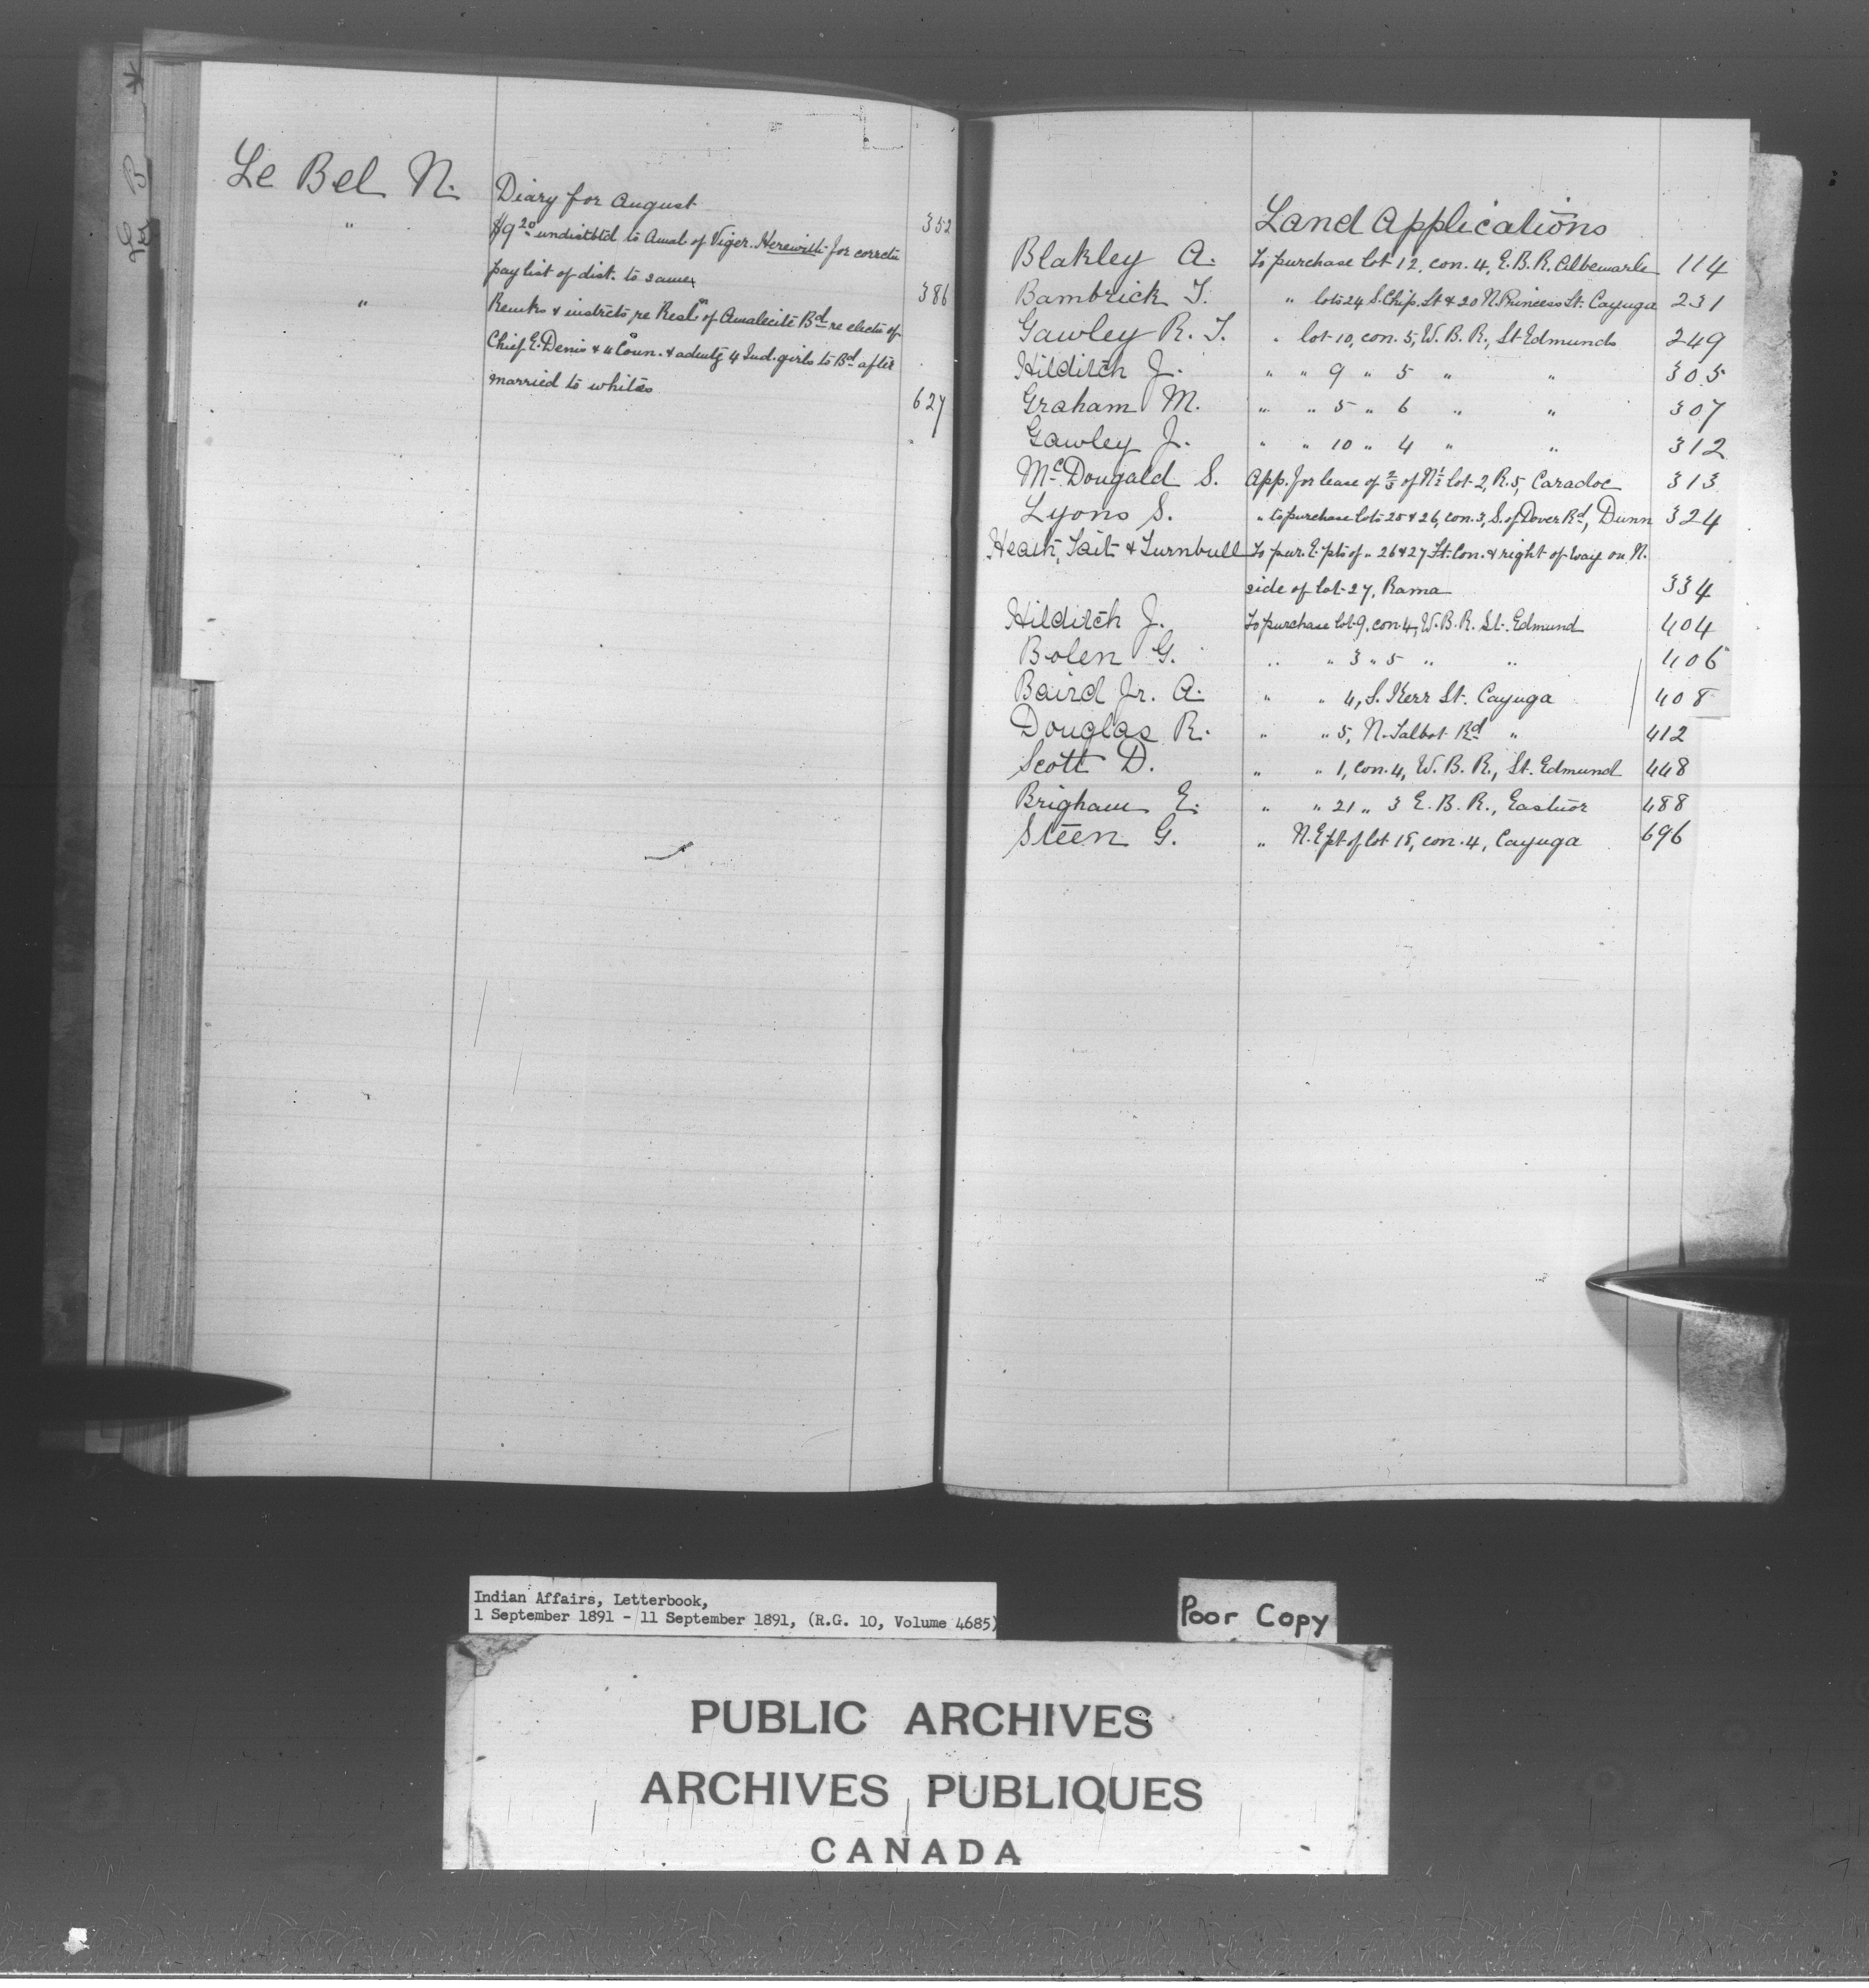 Le B
Le Bel N. Diary for August 352
" $9 20 undistbtd to Amal. of Viger. Herewith for correctn
pay list of dist. to same 386
" Remks & instrcts re Resln of Amalecite Bd re electn of
Chief E. Denis & 4 Coun. & admtg 4 Ind. girls to Bd after
married to whites 627
Land Applications
Blakley A. To purchase lot 12, con. 4, E. B. R. Albemarle 114
Bambrick T. " lots 24 S. Chip. St & 20 N. Princess St. Cayuga 231
Gawley R. T. " lot 10, con. 5, W. B. R., St Edmunds 249
Hilditch J. " " 9 " 5 " " 305
Graham M. " " 5 " 6 " " 307
Gawley J. " " 10 " 4 " " 312
McDougald S. App. for lease of 2/3 of N 1/2 lot 2, R. 5, Caradoc 313
Lyons S. " to purchase lots 25 & 26, con. 3, S. of Dover Rd, Dunn 324
Heath, Tait & Turnbull To pur. E. pts of " 26 & 27 Ft. Con. & right of way on N.
side of lot 27, Rama 334
Hilditch J. To purchase lot 9, con 4, W. B. R. St. Edmund 404
Bolen G. " " 3 " 5 " " 406
Baird Jr. A. " " 4, S. Kerr St. Cayuga 408
Douglas R. " " 5, N. Talbot Rd " 412
Scott D. " " 1, con. 4, W. B. R., St. Edmund 448
Brigham E. " " 21 " 3 E. B. R., Eastnor 488
Steen G. " N. E pt of lot 18, con. 4, Cayuga 696
Indian Affairs, Letterbook,
1 September 1891 - 11 September 1891, (R.G. 10, Volume 4685)
Poor Copy
PUBLIC ARCHIVES
ARCHIVES PUBLIQUES
CANADA